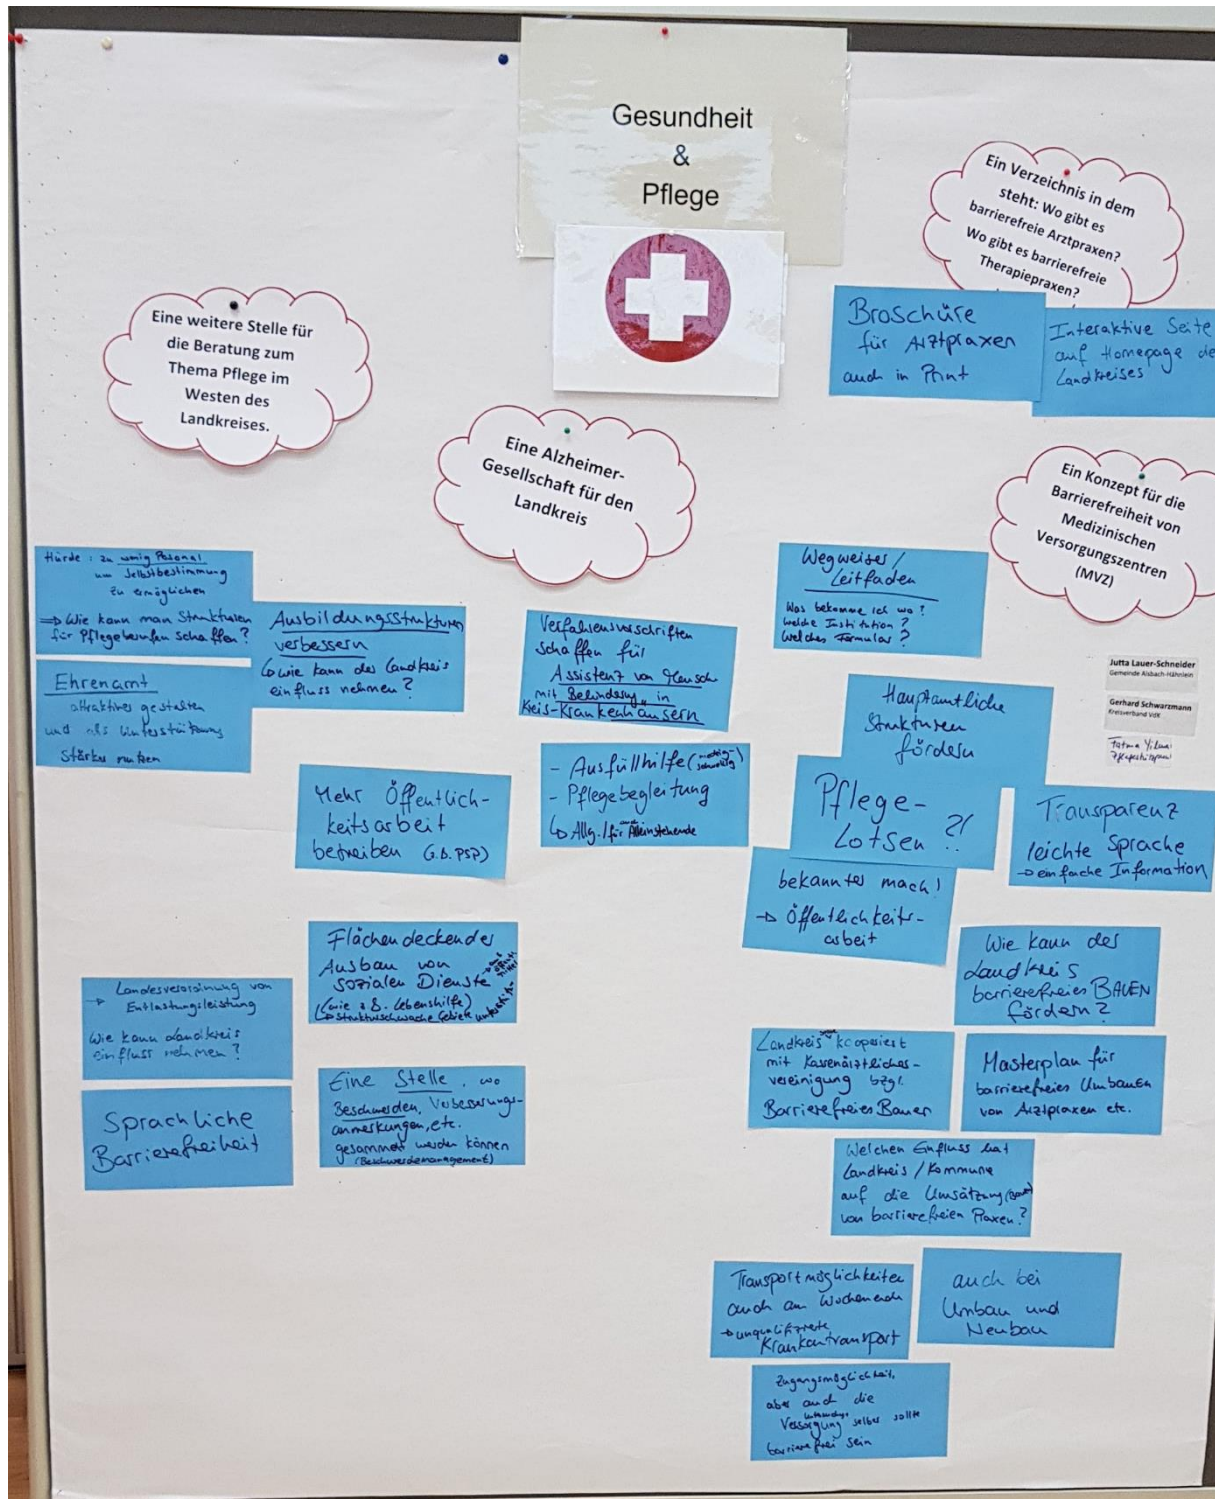 Gesundheit
&
Pflege
Ein Verzeichnis in dem
steht: Wo gibt es
barrierefreie Arztpraxen?
Wo gibt es barrierefreie
Therapiepraxen?
Broschüre
für Arztpraxen
auch in Print
Interaktive Seite
auf Homepage de
Landkreises
Eine weitere Stelle für
die Beratung zum
Thema Pflege im
Westen des
Landkreises.
Eine Alzheimer-
Gesellschaft für den
Landkreis
Ein Konzept für die
Barrierefreiheit von
Medizinischen
Versorgungszentren
(MVZ)
Hürde: zu wenig Personal
um Selbstbestimmung
zu ermöglichen
⇒ Wie kann man Strukturen
für Pflegeberufen schaffen?
Ausbildungsstrukturen
verbessern
↳ wie kann der Landkreis
einfluss nehmen?
Ehrenamt
attraktiver gestalten
und als Unterstützung
Stärker nutzen
Verfahrensvorschriften
schaffen für
Assistenz von Mensch
mit Behinderung in
Kreis-Krankenhäusern
Wegweiser/
Leitfaden
Was bekomme ich wo?
welche Institution?
Welches Formular?
Jutta Lauer-Schneider
Gemeinde Alsbach-Hähnlein
Gerhard Schwarzmann
Kreisverband VdK
Fatma
Hauptamtliche
Strukturen
fördern
- Ausfüllhilfe
- Pflegebegleitung
↳ Allg./für auch Alleinstehende
Mehr Öffentlich-
keitsarbeit
betreiben (z.B. PSP)
Pflege-
Lotsen ?!
Transparenz
leichte Sprache
→ einfache Information
bekannter mach!
→ Öffentlichkeits-
arbeit
Flächendeckender
Ausbau von
sozialen Dienste
(wie z.B. Lebenshilfe)
→ Strukturschwache Gebiete
Wie kann der
Landkreis
barrierefreies BAUEN
fördern?
→ Landesverordnung von
Entlastungsleistung
Wie kann Landkreis
einfluss nehmen?
Landkreis kooperiert
mit Kassenärztliches-
vereinigung bzgl.
Barrierefreies Bauen
Masterplan für
barrierefreies Umbauen
von Arztpraxen etc.
Sprachliche
Barrierefreiheit
Eine Stelle, wo
Beschwerden, Verbesserungs-
anmerkungen, etc.
gesammelt werden können
(Beschwerdemanagement)
Welchen Einfluss hat
Landkreis/Kommune
auf die Umsätzung
von barrierefreien Praxen?
Transportmöglichkeiten
auch am Wochenende
→ unqualifizierte
Krankentransport
auch bei
Umbau und
Neubau
Zugangsmöglichkeit,
aber auch die
Versorgung selber sollte
barrierefrei sein